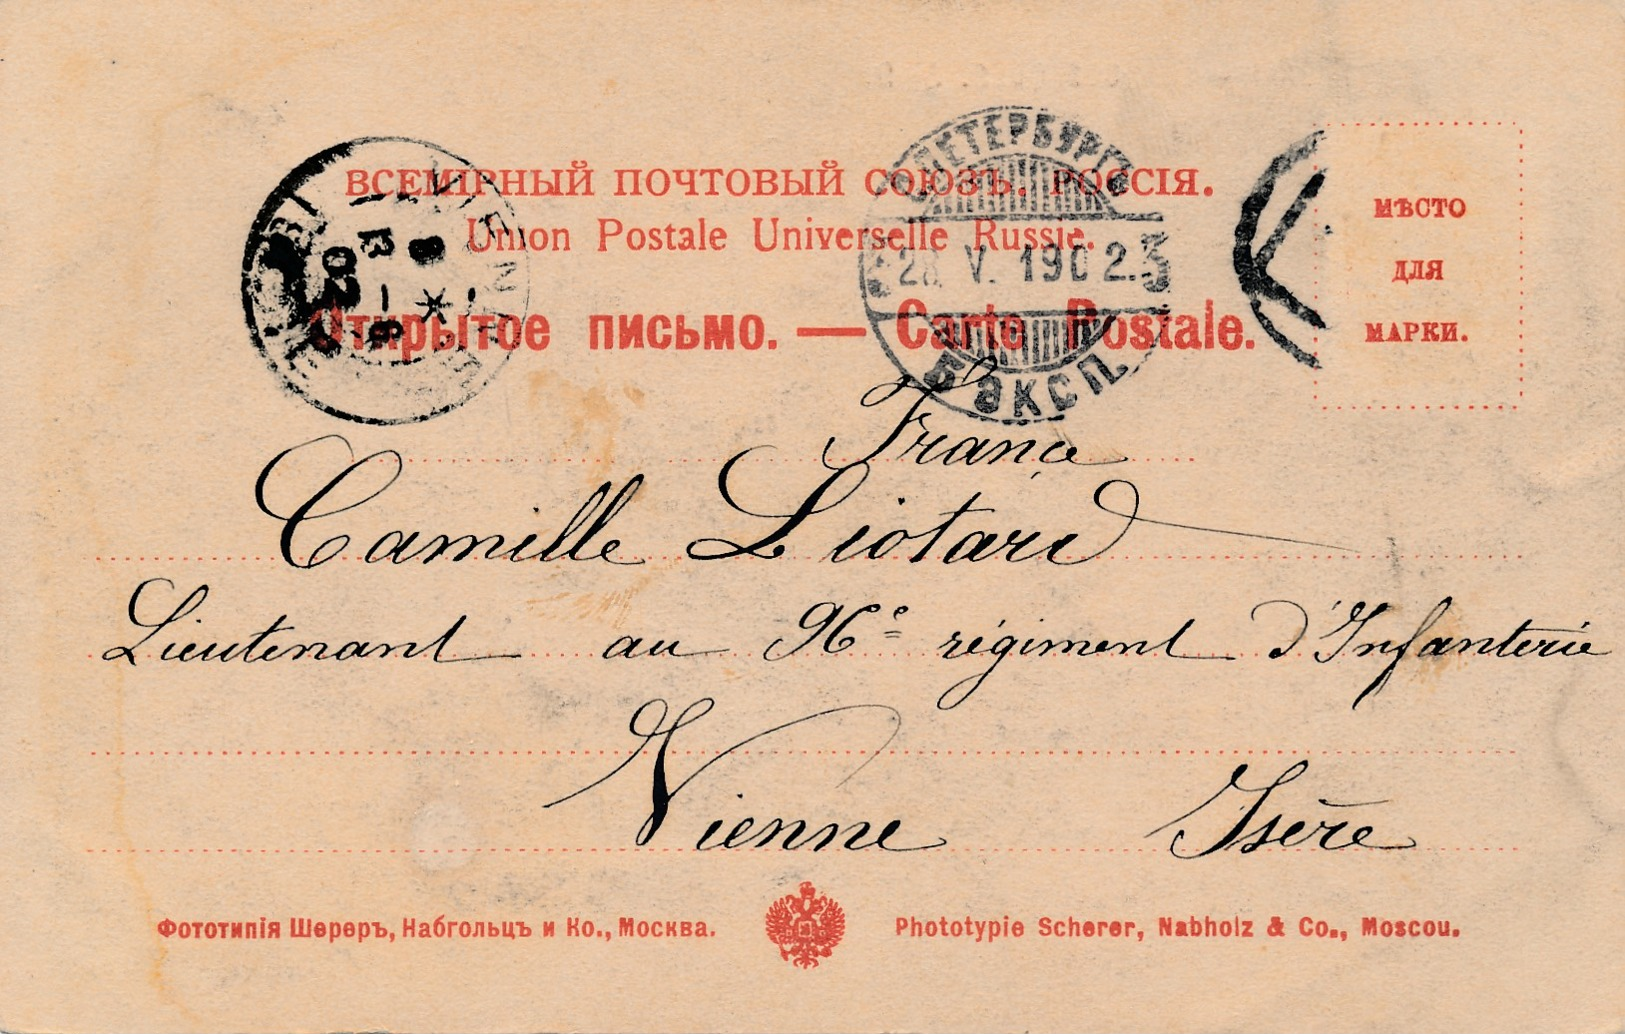 ВСЕМІРНЫЙ ПОЧТОВЫЙ СОЮЗЪ, РОССІЯ.
Union Postale Universelle Russie.
Открытое письмо. — Carte Postale.
МѢСТО
ДЛЯ
МАРКИ.
VIENNE
ПЕТЕРБУРГ
V. 1902. 3
ЭКСП.
France
Camille Liotard
Lieutenant au 96e régiment d'Infanterie
Vienne Isère
Фототипія Шереръ, Набгольцъ и Ко., Москва. Phototypie Scherer, Nabholz & Co., Moscou.